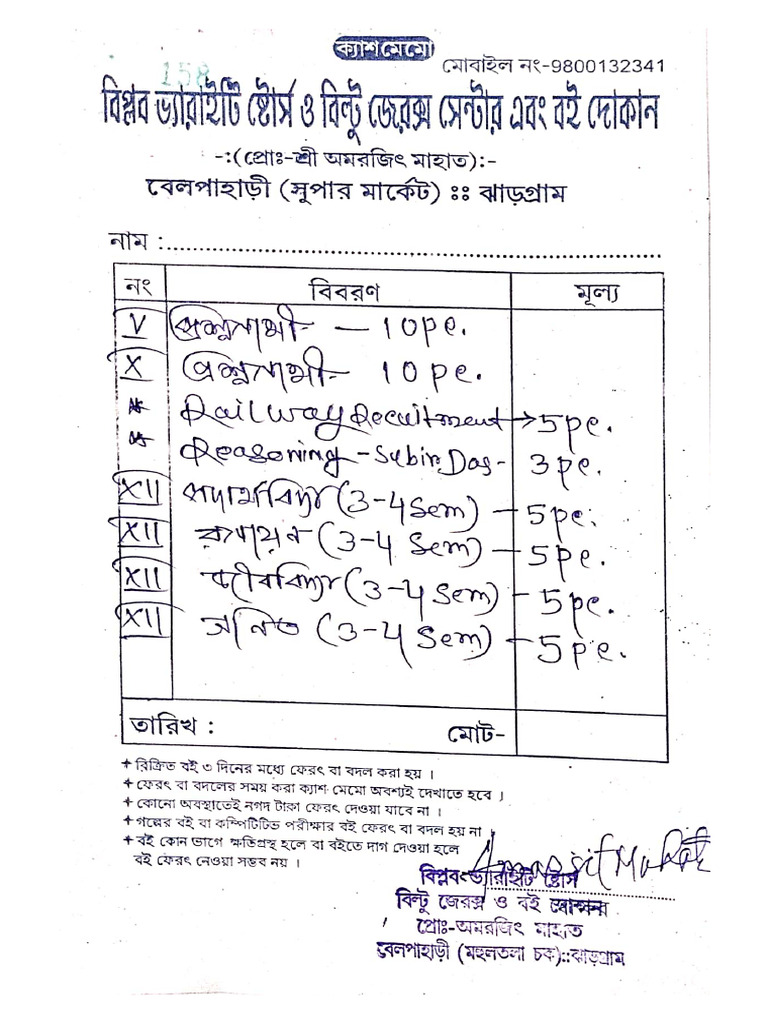 ক্যাশমেমো
158
মোবাইল নং-9800132341
বিপ্লব ভ্যারাইটি ষ্টোর্স ও বিল্টু জেরক্স সেন্টার এবং বই দোকান
-:(প্রোঃ-শ্রী অমরজিৎ মাহাত):-
বেলপাহাড়ী (সুপার মার্কেট) ঃঃ ঝাড়গ্রাম
নাম :
নং বিবরণ মূল্য
V — 10pc.
X 10 pc.
* Railway Recuitment → 5 pc.
* Reasoning - Subir Das - 3 pc.
XII পদার্থবিদ্যা (3-4 Sem) - 5pc.
XII রসায়ন (3-4 Sem) - 5pc.
XII জীববিদ্যা (3-4 Sem) - 5pc.
XII গনিত (3-4 Sem) - 5 pc.
তারিখ : মোট-
+ বিক্রিত বই ৩ দিনের মধ্যে ফেরৎ বা বদল করা হয় ।
+ ফেরৎ বা বদলের সময় করা ক্যাশ মেমো অবশ্যই দেখাতে হবে ।
+ কোনো অবস্থাতেই নগদ টাকা ফেরৎ দেওয়া যাবে না ।
+ গল্পের বই বা কম্পিটিটিভ পরীক্ষার বই ফেরৎ বা বদল হয় না
+ বই কোন ভাগে ক্ষতিগ্রস্থ হলে বা বইতে দাগ দেওয়া হলে
বই ফেরৎ নেওয়া সম্ভব নয় ।
Amarjit Mahata
বিপ্লব ভ্যারাইটি ষ্টোর্স
বিল্টু জেরক্স ও বই দোকান
প্রোঃ-অমরজিৎ মাহাত
বেলপাহাড়ী (মহুলতলা চক)::ঝাড়গ্রাম